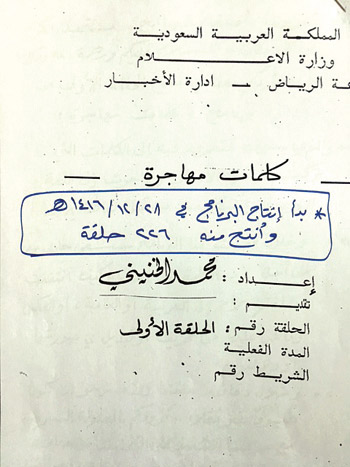 المملكة العربية السعودية
وزارة الاعـــلام
الرياض — ادارة الأخبار
— كلمات مهاجرة —
* بدأ إنتاج البرنامج في ٢٨/١٢/١٤١٦هـ
وأنتج منه ٢٢٦ حلقة
إعداد : محمد الخنيني
تقديم :
الحلقة رقم : الحلقة الأولى
المدة الفعلية
الشريط رقم